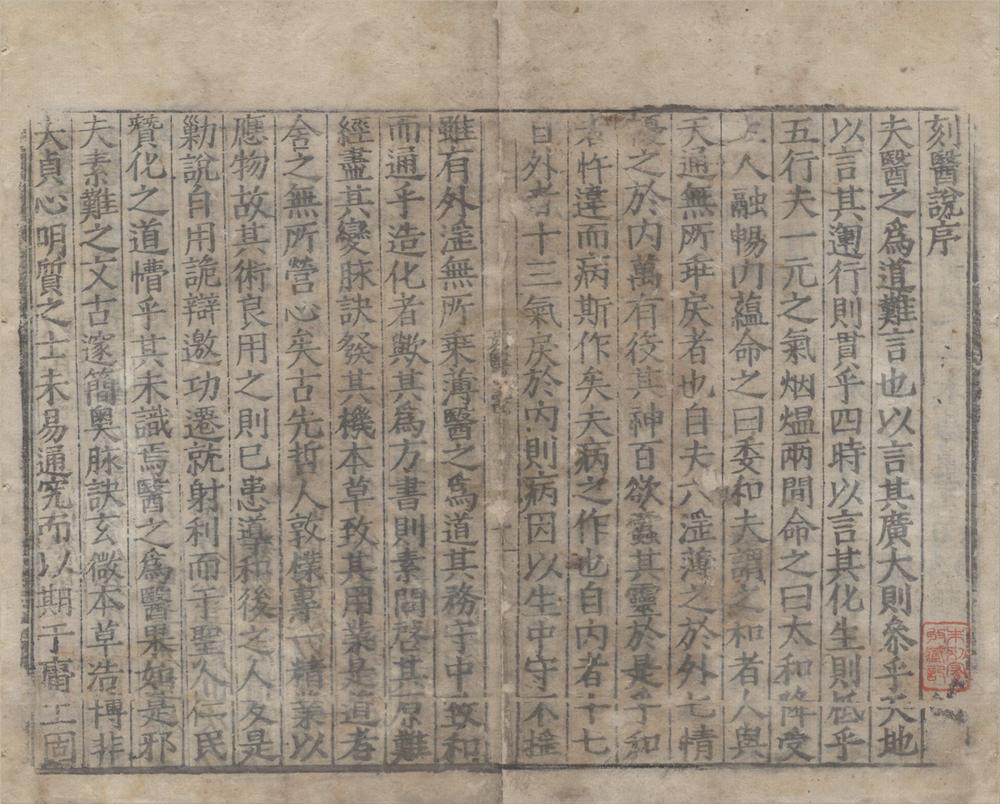 刻醫說序
夫醫之為道難言也以言其廣大則叅乎天地
以言其運行則貫乎四時以言其化生則秪乎
五行夫一元之氣烟熅兩間命之曰太和降受
人融暢內蘊命之曰委和夫謂之和者人與
天通無所乖戾者也自夫六淫薄之於外七情
之於內萬有役其神百欲蠱其靈於是乎和
者忤違而病斯作矣夫病之作也自內者十七
自外者十三氣戾於內則病因以生中守不搖
雖有外淫無所乗薄醫之為道其務守中致和
而通乎造化者歟其為方書則素問啓其原難
經盡其變脉訣發其機本草致其用業是道者
舍之無所營心矣古先哲人敦樸專一精業以
應物故其術良用之則已患導和後之人反是
勦說自用詭辯邀功遷就射利而于聖人仁民
贊化之道懵乎其未識焉醫之為醫果如是邪
夫素難之文古邃簡奧脉訣玄微本草浩博非
大貞心明質之士未易通究而以期于庸工固